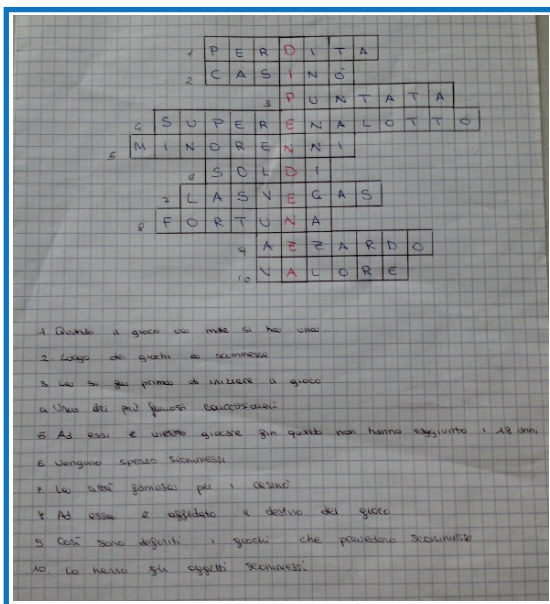 1 PERDITA
2 CASINÒ
3 PUNTATA
4 SUPERENALOTTO
5 MINORENNI
6 SOLDI
7 LASVEGAS
8 FORTUNA
9 AZZARDO
10 VALORE
1 Quando il gioco va male si ha una
2 Luogo dei giochi a scommesse
3 La si fa prima di iniziare il gioco
4 Uno dei più famosi concessionari
5 Ad essi è vietato giocare fin quando non hanno raggiunto i 18 anni.
6 Vengono spesso scommessi
7 La città famosa per i casinò
8 Ad essa è affidato il destino del gioco
9 Così sono definiti i giochi che prevedono scommesse
10. Lo hanno gli oggetti scommessi